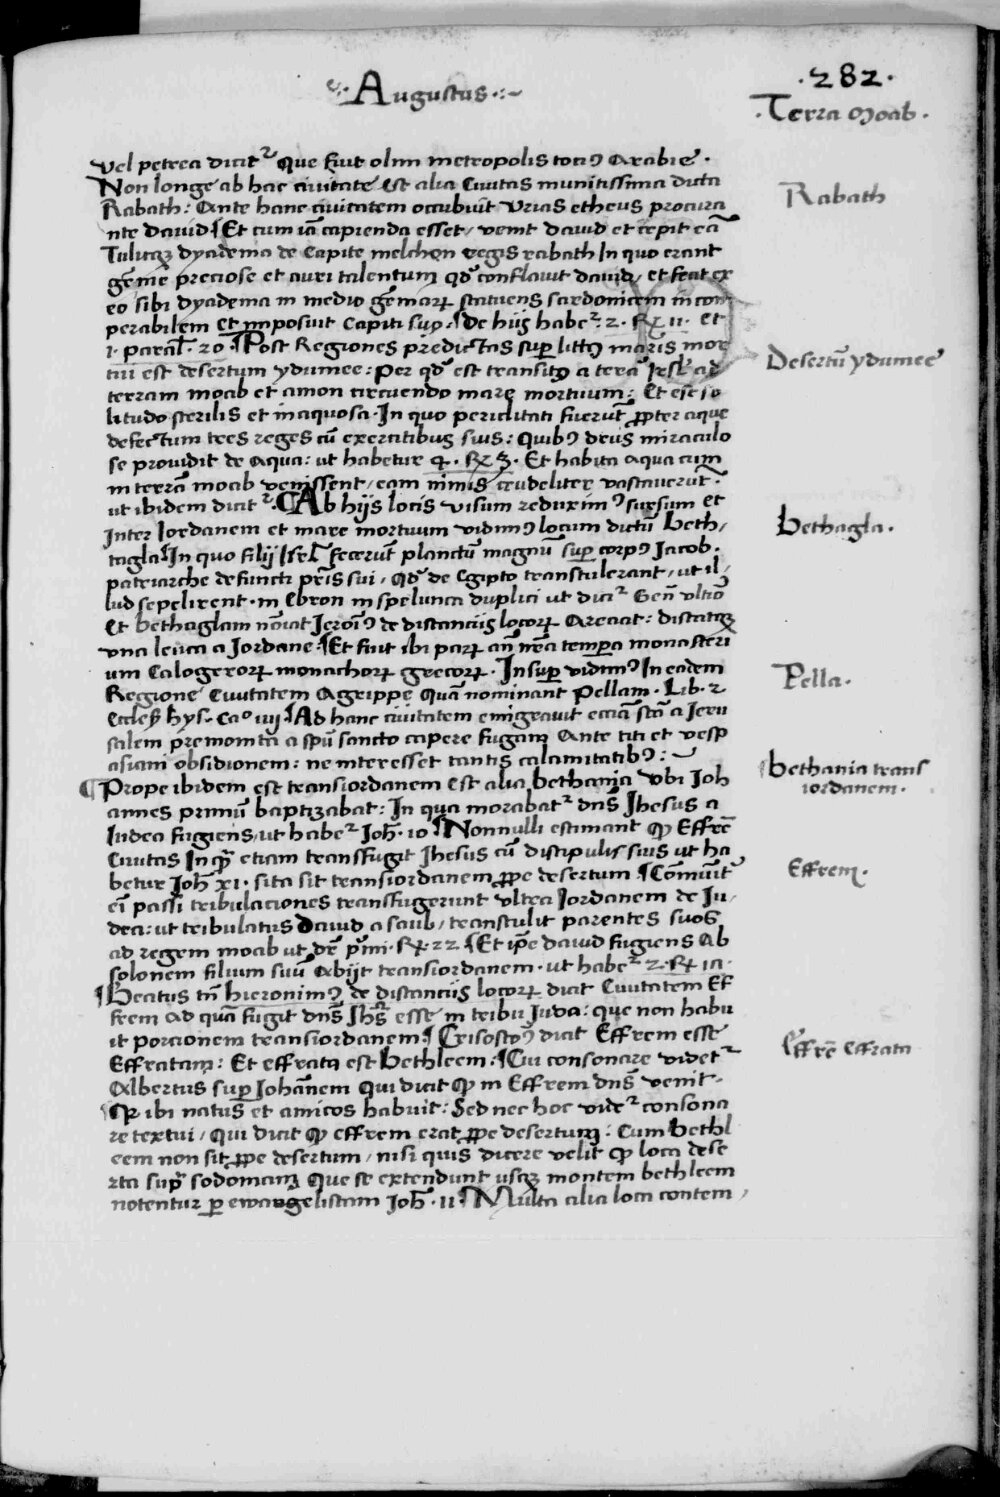 Augustus
.282.
Terra Moab.
vel petrea dicitr Que fuit olim metropolis toci9 Arabie.
Non longe ab hac ciuitate est alia Ciuitas munitissima dicta
Rabath: Ante hanc ciuitatem occubuit Vrias etheus procura
Rabath
nte dauid Et cum iā capienda esset/ venit dauid et cepit eā
Tulitqz dyadema de Capite melchon regis rabath In quo erant
gēme preciose et auri talentum qd' conflauit dauid/ et fecit ex
eo sibi dyadema in medio gēmarꝝ statuens sardonicem incon
perabilem Et imposuit Capiti suo. De hijs haber. 2. Rꝝ 11. et
1. paral'. 20. Post Regiones predictas super litt9 maris mor
Desertū ydumee
tui est desertum ydumee: Per qd' est transit9 a terā Irsl' ad
terram moab et amon circuendo mare mortuum: Et est so
litudo sterilis et inaquosa. In quo periclitati fuerūt ꝓpter aque
defectum tres reges cū exercitibus suis: Quib9 deus miraculo
se prouidit de Aqua: ut habetur 4. Rꝝ 3. Et habita aqua cum
in terrā moab venissent/ eam nimis crudeliter vastauerūt.
ut ibidem dicitr. Ab hijs locis visum reduxim9 sursum Et
Inter Iordanem et mare mortuum vidim9 locum dictū Beth/
Bethagla.
tagla In quo filij Isrl' fecerūt planctū magnū super corp9 Jacob.
patriarche defuncti pr̄is sui/ Qd' de Egipto transtulerant/ ut il/
lud sepelirent. in Ebron in spelunca duplici ut dicir Gen̄ vltiō
Et bethaglam nōiat Jeroī9 de distancijs locorꝝ Areaat: distatqz
vna leuca a Jordane. Et fuit ibi parꝝ an̄ nr̄a tempora monasteri
um Calogerorꝝ monachorꝝ grecorꝝ. Insuper vidim9 In eadem
Pella.
Regione Ciuitatem Agrippe Quā nominant Pellam. Lib. 2
Eccles' hys. Cao iiij. Ad hanc ciuitatem emigrauit eccīa sctā a Ieru
salem premonita a spū sancto capere fugam Ante titi et vesp
asiani obsidionem: ne interesset tantis calamitatib9:
Prope ibidem est transiordanem est alia bethania vbi Joh
bethania trans
iordanem.
annes primū baptizabat: In qua morabatr dn̄s Jhesus a
Iudea fugiens/ ut haber Joh̄. 10 Nonnulli estimant Quod Effrē
Ciuitas In qua etiam transfugit Jhesus cū discipulis suis ut ha
betur Joh̄ xi. sita sit transiordanem ꝓpe desertum Cōmūitr
Effrem.
eī passi tribulaciones transfugerunt vltra Iordanem de Iu/
dea: ut tribulatus Dauid a saul/ transtulit parentes suos
ad regem moab ut dr̄ pimi. Rꝝ. 22 Et ipe dauid fugiens Ab
solonem filium suū Abijt transiordanem. ut haber 2. Rꝝ
Beatus tn̄ hieronim9 de distancijs locorꝝ dicit Ciuitatem Ef
frem ad quā fugit dn̄s Jhs̄ esse in tribu Juda: que non habu
it porcionem transiordanem: Crisosto9 dicit Effrem esse
Effrē Effrata
Effratam: Et effrata est Bethleem: Cui consonare videtr
Albertus super Johānem Qui dicit Quod in Effrem dn̄s venit.
Quia ibi natus et amicos habuit: Sed nec hoc vider consona
re textui/ Qui dicit Quod effrem erat ꝓpe desertum: Cum Bethl
eem non sit ꝓpe desertum/ nisi quis dicere velit Quod loca dese
rta supra sodomam Que se extendunt usqz montem bethleem
notentur per ewangelistam Joh̄. 11. Multa alia loca contem/